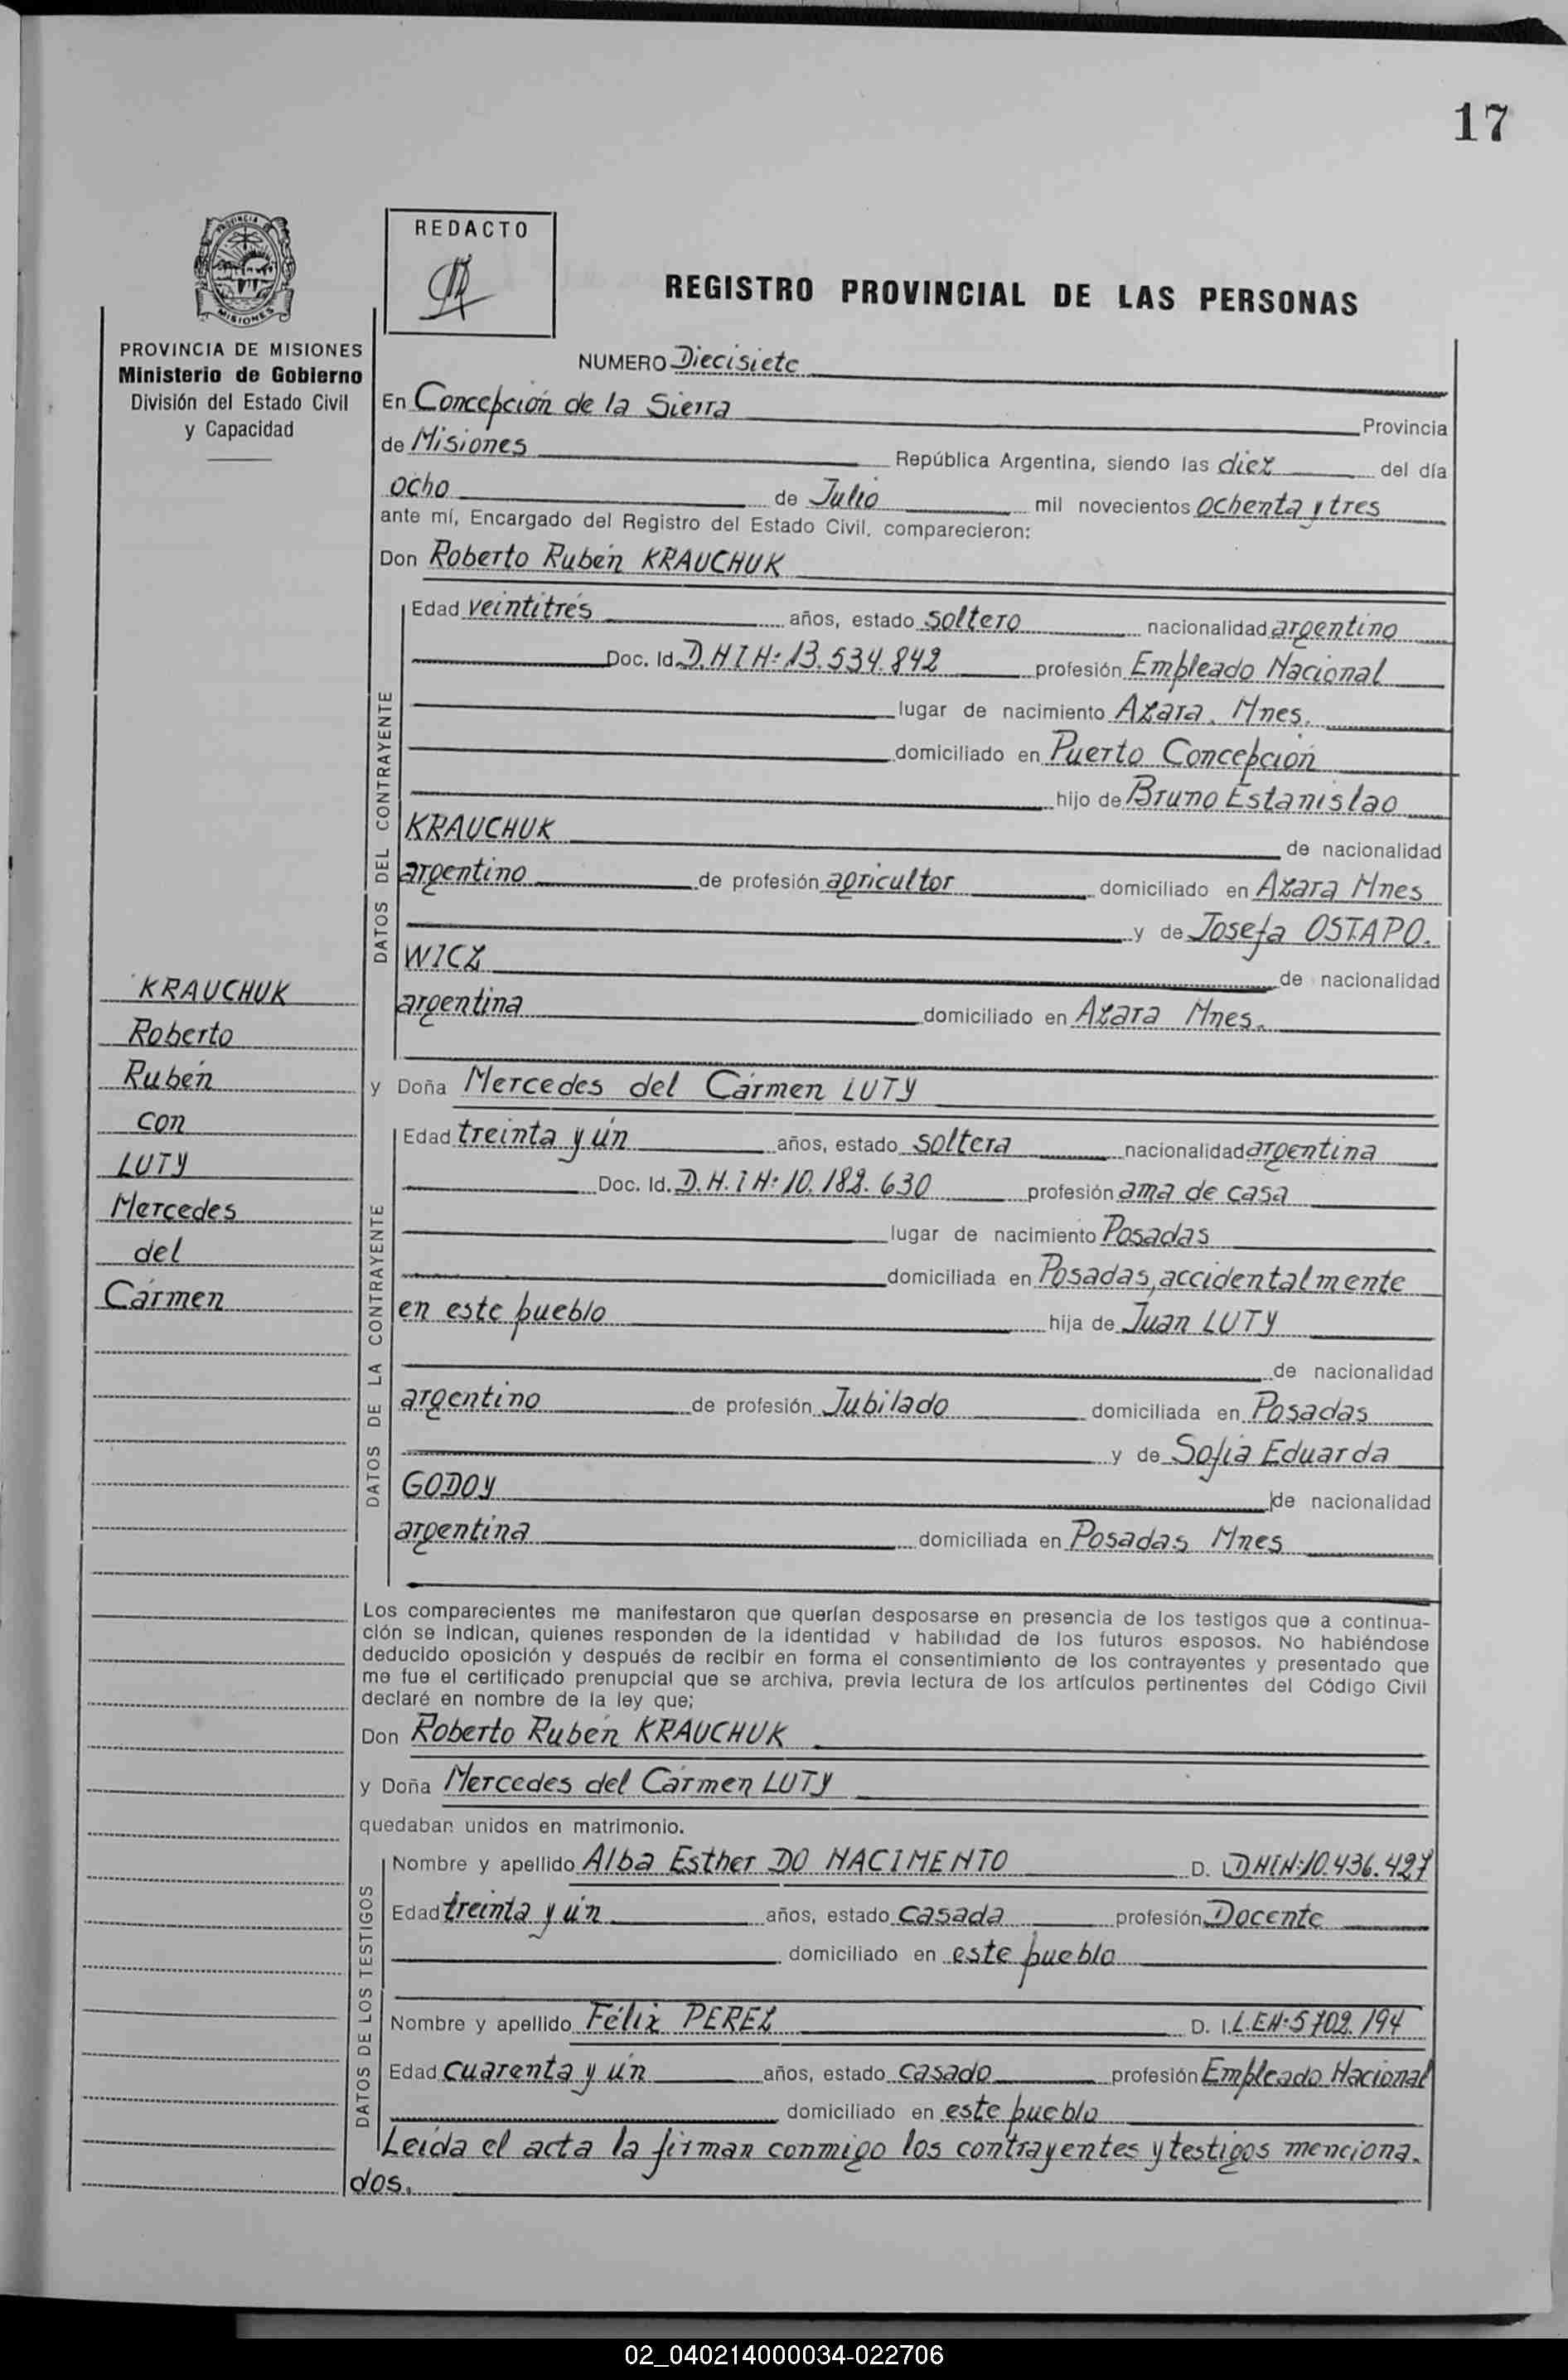 17
REDACTO
REGISTRO PROVINCIAL DE LAS PERSONAS
PROVINCIA DE MISIONES
Ministerio de Gobierno
División del Estado Civil
y Capacidad
NUMERO Diecisiete
En Concepción de la Sierra Provincia
de Misiones República Argentina, siendo las diez del día
ocho de Julio mil novecientos ochenta y tres
ante mí, Encargado del Registro del Estado Civil, comparecieron:
Don Roberto Rubén KRAUCHUK
DATOS DEL CONTRAYENTE
Edad veintitrés años, estado soltero nacionalidad argentino
Doc. Id. D.N.I Nº 13.534.842 profesión Empleado Nacional
lugar de nacimiento Azara. Mnes.
domiciliado en Puerto Concepción
hijo de Bruno Estanislao
KRAUCHUK de nacionalidad
argentino de profesión agricultor domiciliado en Azara Mnes
y de Josefa OSTAPO.
WICZ de nacionalidad
argentina domiciliado en Azara Mnes.
KRAUCHUK
Roberto
Rubén
con
LUTY
Mercedes
del
Cármen
y Doña Mercedes del Cármen LUTY
DATOS DE LA CONTRAYENTE
Edad treinta y ún años, estado soltera nacionalidad argentina
Doc. Id. D.N.I Nº 10.182.630 profesión ama de casa
lugar de nacimiento Posadas
domiciliada en Posadas, accidentalmente
en este pueblo hija de Juan LUTY
de nacionalidad
argentino de profesión Jubilado domiciliada en Posadas
y de Sofía Eduarda
GODOY de nacionalidad
argentina domiciliada en Posadas Mnes
Los comparecientes me manifestaron que querían desposarse en presencia de los testigos que a continua-
ción se indican, quienes responden de la identidad y habilidad de los futuros esposos. No habiéndose
deducido oposición y después de recibir en forma el consentimiento de los contrayentes y presentado que
me fue el certificado prenupcial que se archiva, previa lectura de los artículos pertinentes del Código Civil
declaré en nombre de la ley que;
Don Roberto Rubén KRAUCHUK
y Doña Mercedes del Cármen LUTY
quedaban unidos en matrimonio.
DATOS DE LOS TESTIGOS
Nombre y apellido Alba Esther DO NACIMENTO D. I. DNI Nº 10.436.427
Edad treinta y ún años, estado casada profesión Docente
domiciliado en este pueblo
Nombre y apellido Félix PEREZ D. I. L.E Nº 5702.194
Edad cuarenta y ún años, estado casado profesión Empleado Nacional
domiciliado en este pueblo
Leída el acta la firman conmigo los contrayentes y testigos menciona.
dos.
02_040214000034-022706